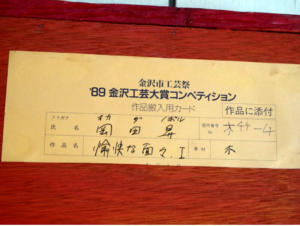 金沢市工芸祭
'89 金沢工芸大賞コンペティション
作品搬入用カード
作品に添付
フリガナ オカ ダ ノボル
氏名 岡田昇
受付番号 No.
作品名 愉快な面々 I
素材 木